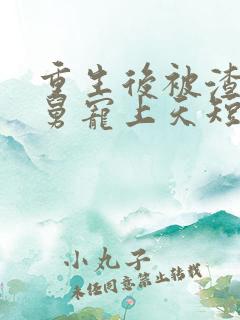 重生後被渣
舅寵上天短
小丸子
未经同意禁止转载